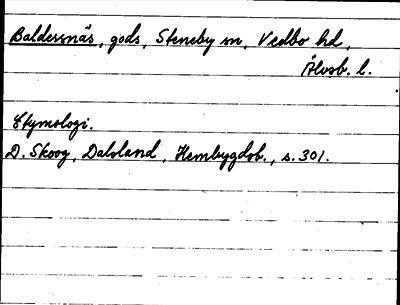 Baldersnäs, gods, Steneby sn, Vedbo hd,
Älvsb. l.
Etymologi.
D. Skoog, Dalsland, Hembygdsb., s. 301.